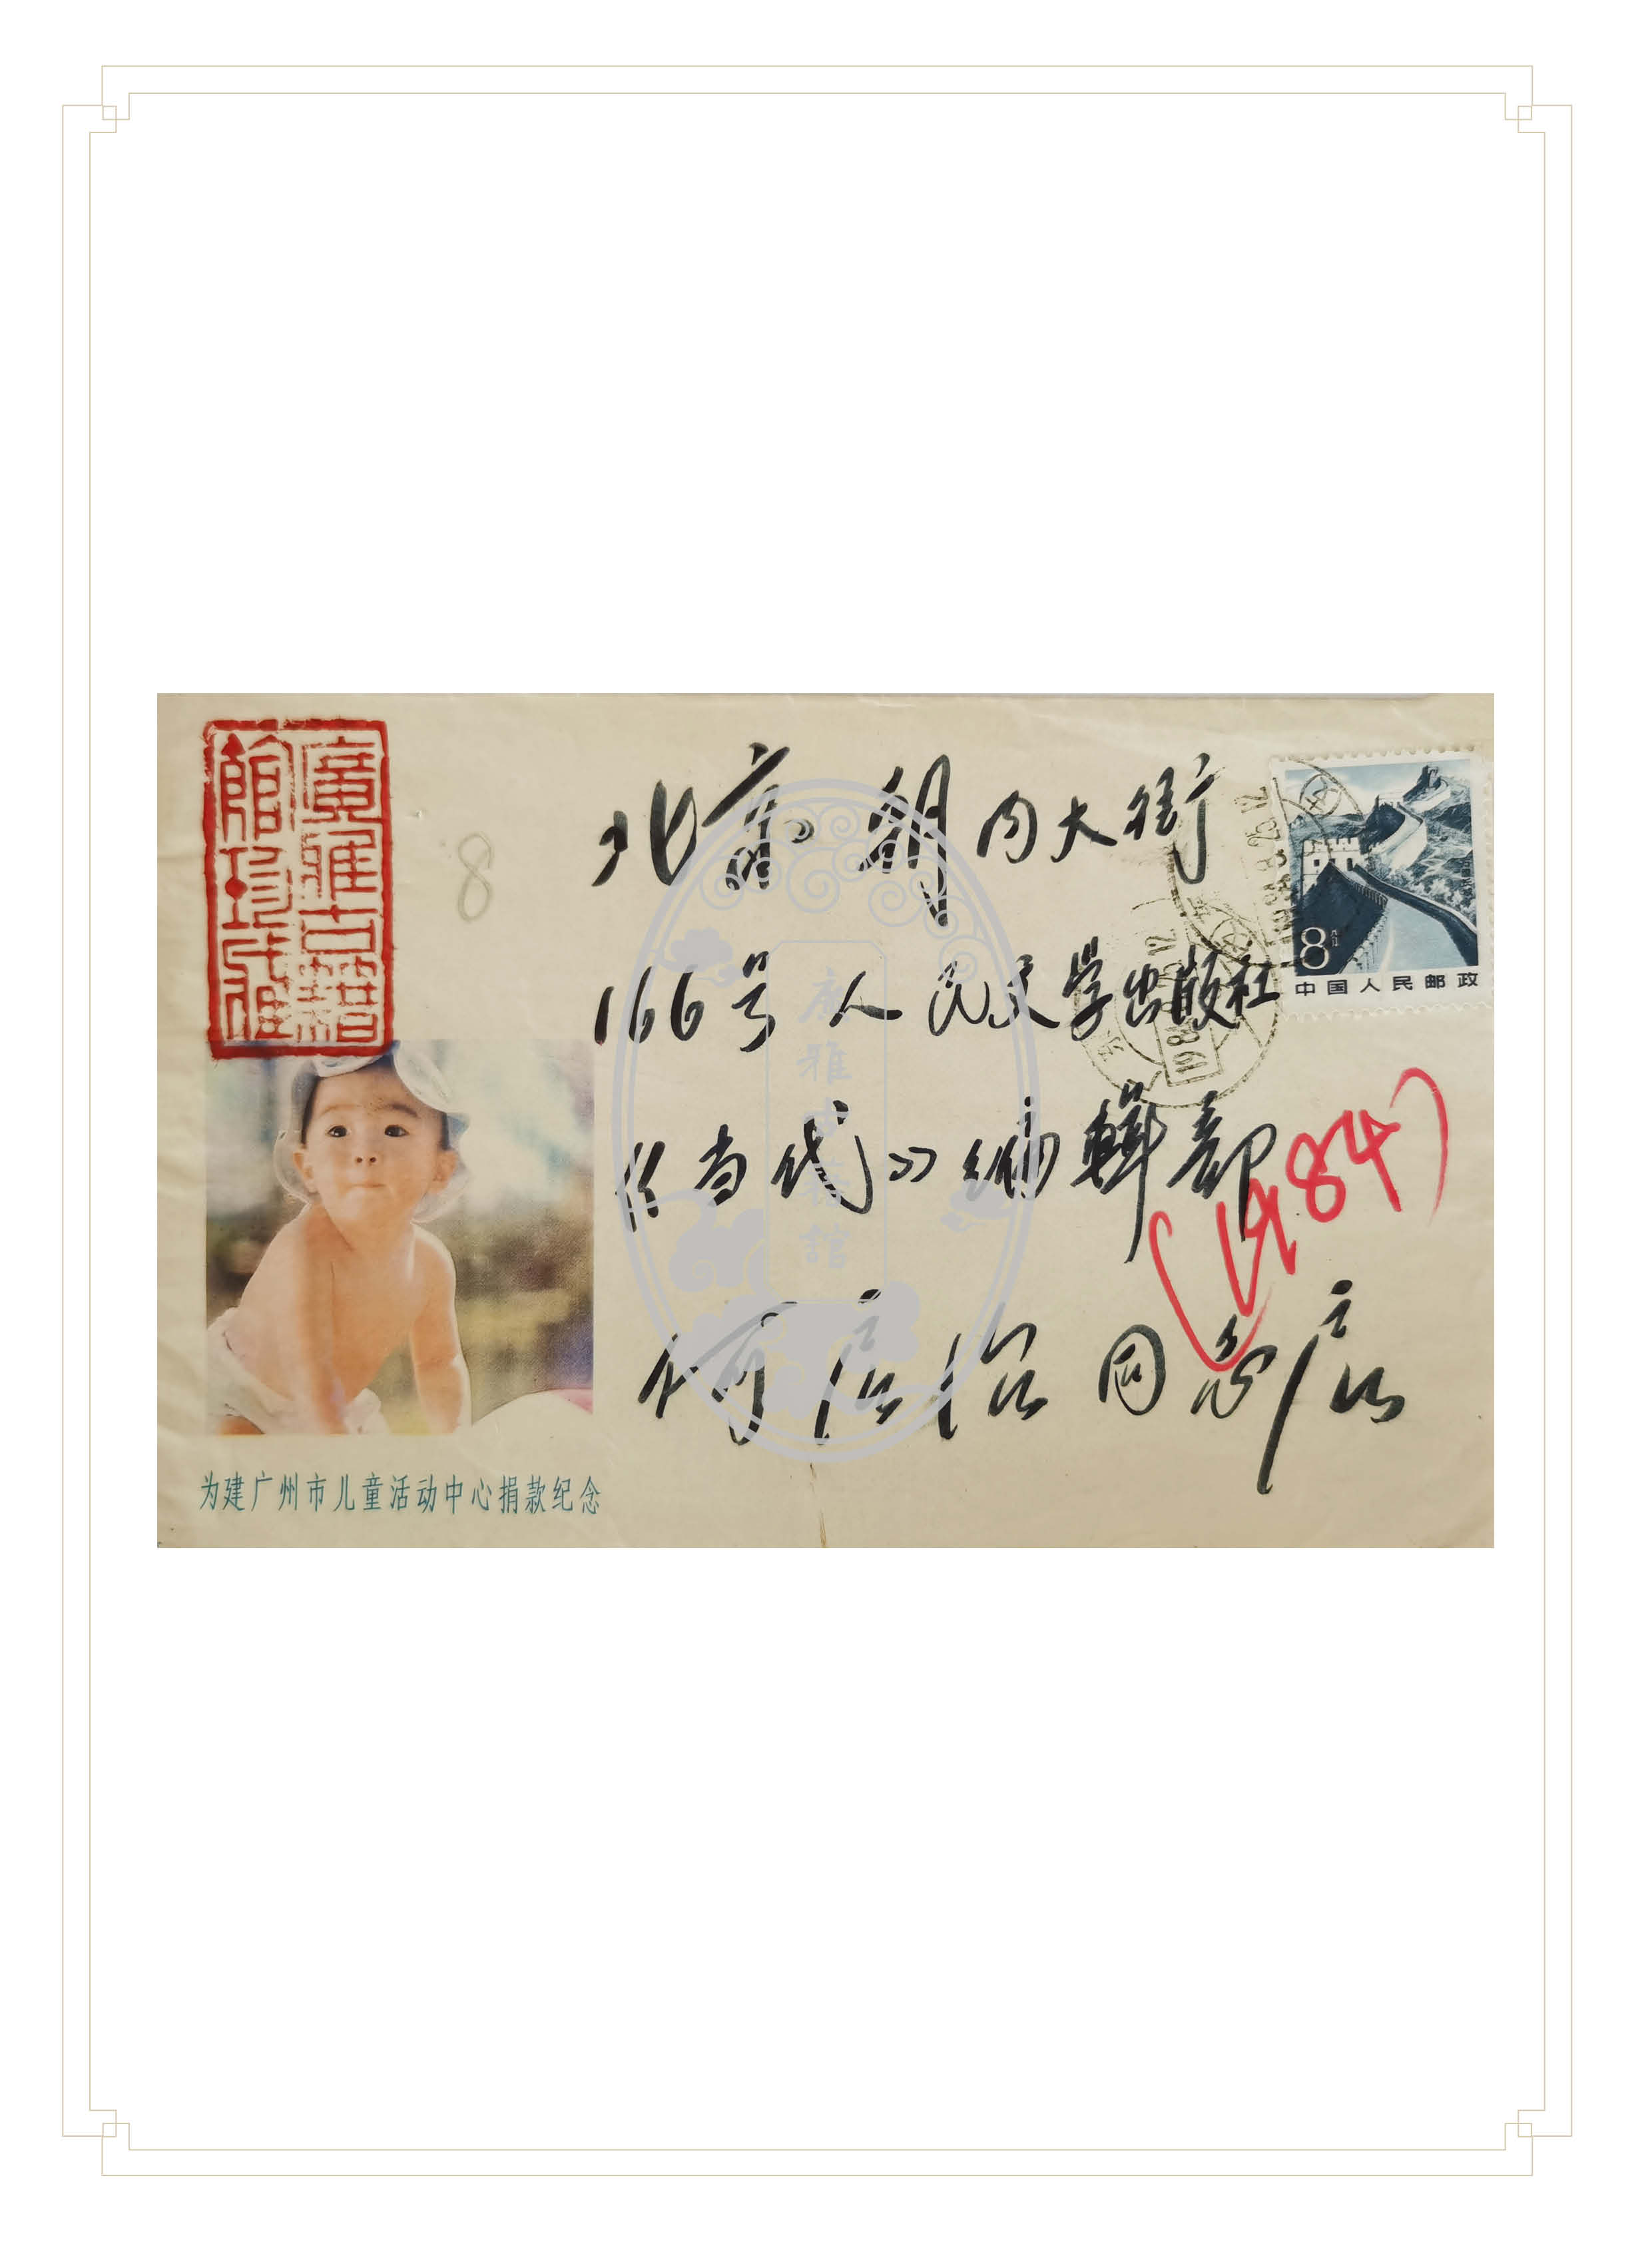 北京朝内大街
166号人民文学出版社
《当代》编辑部
(1984)
何启治同志启
8
8分
中国人民邮政
1983.8.25.12
廣雅古籍
館珍藏
为建广州市儿童活动中心捐款纪念